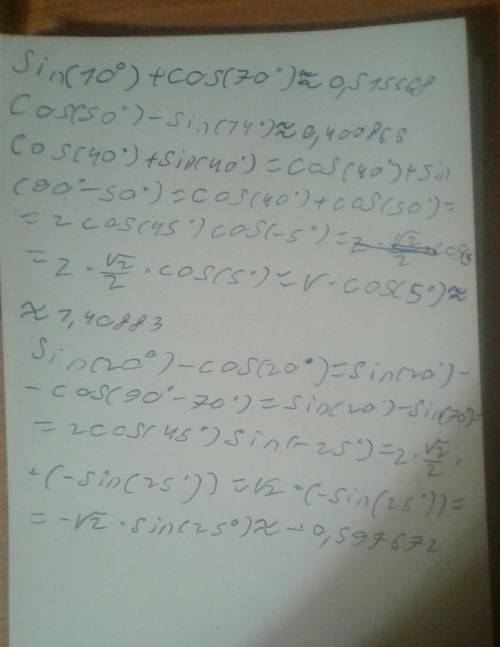 Sin(10°)+cos(70°)≈0,515668
Cos(50°)-sin(14°)≈0,400866
Cos(40°)+sin(40°)=cos(40°)+sin
(90°-50°)=cos(40°)+cos(50°)=
=2cos(45°)cos(-5°)=
=2·√2/2·cos(5°)=√·cos(5°)≈
≈1,40883
Sin(20°)-cos(20°)=sin(20°)-
-cos(90°-70°)=sin(20°)-sin(70°)=
=2cos(45°)sin(-25°)=2·√2/2·
·(-sin(25°))=√2·(-sin(25°))=
=-√2·sin(25°)≈-0,597672